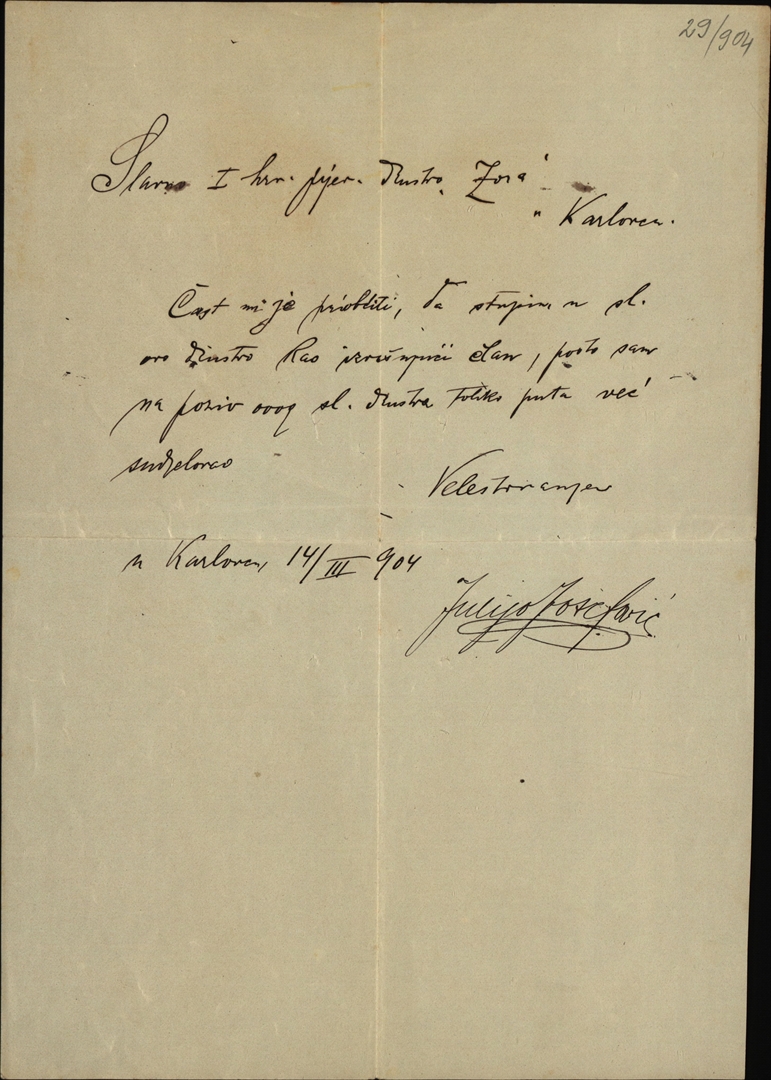 29/904
Slavno I hrv. pjev. društvo „Zora“
u Karlovcu.
Čast mi je priobćiti, da stupim u sl.
ovo društvo kao izvršujući član, pošto sam
na poziv ovog sl. društva toliko puta već
sudjelovao
Velestovanjem
u Karlovcu, 14/III 904
Julijo Josefović